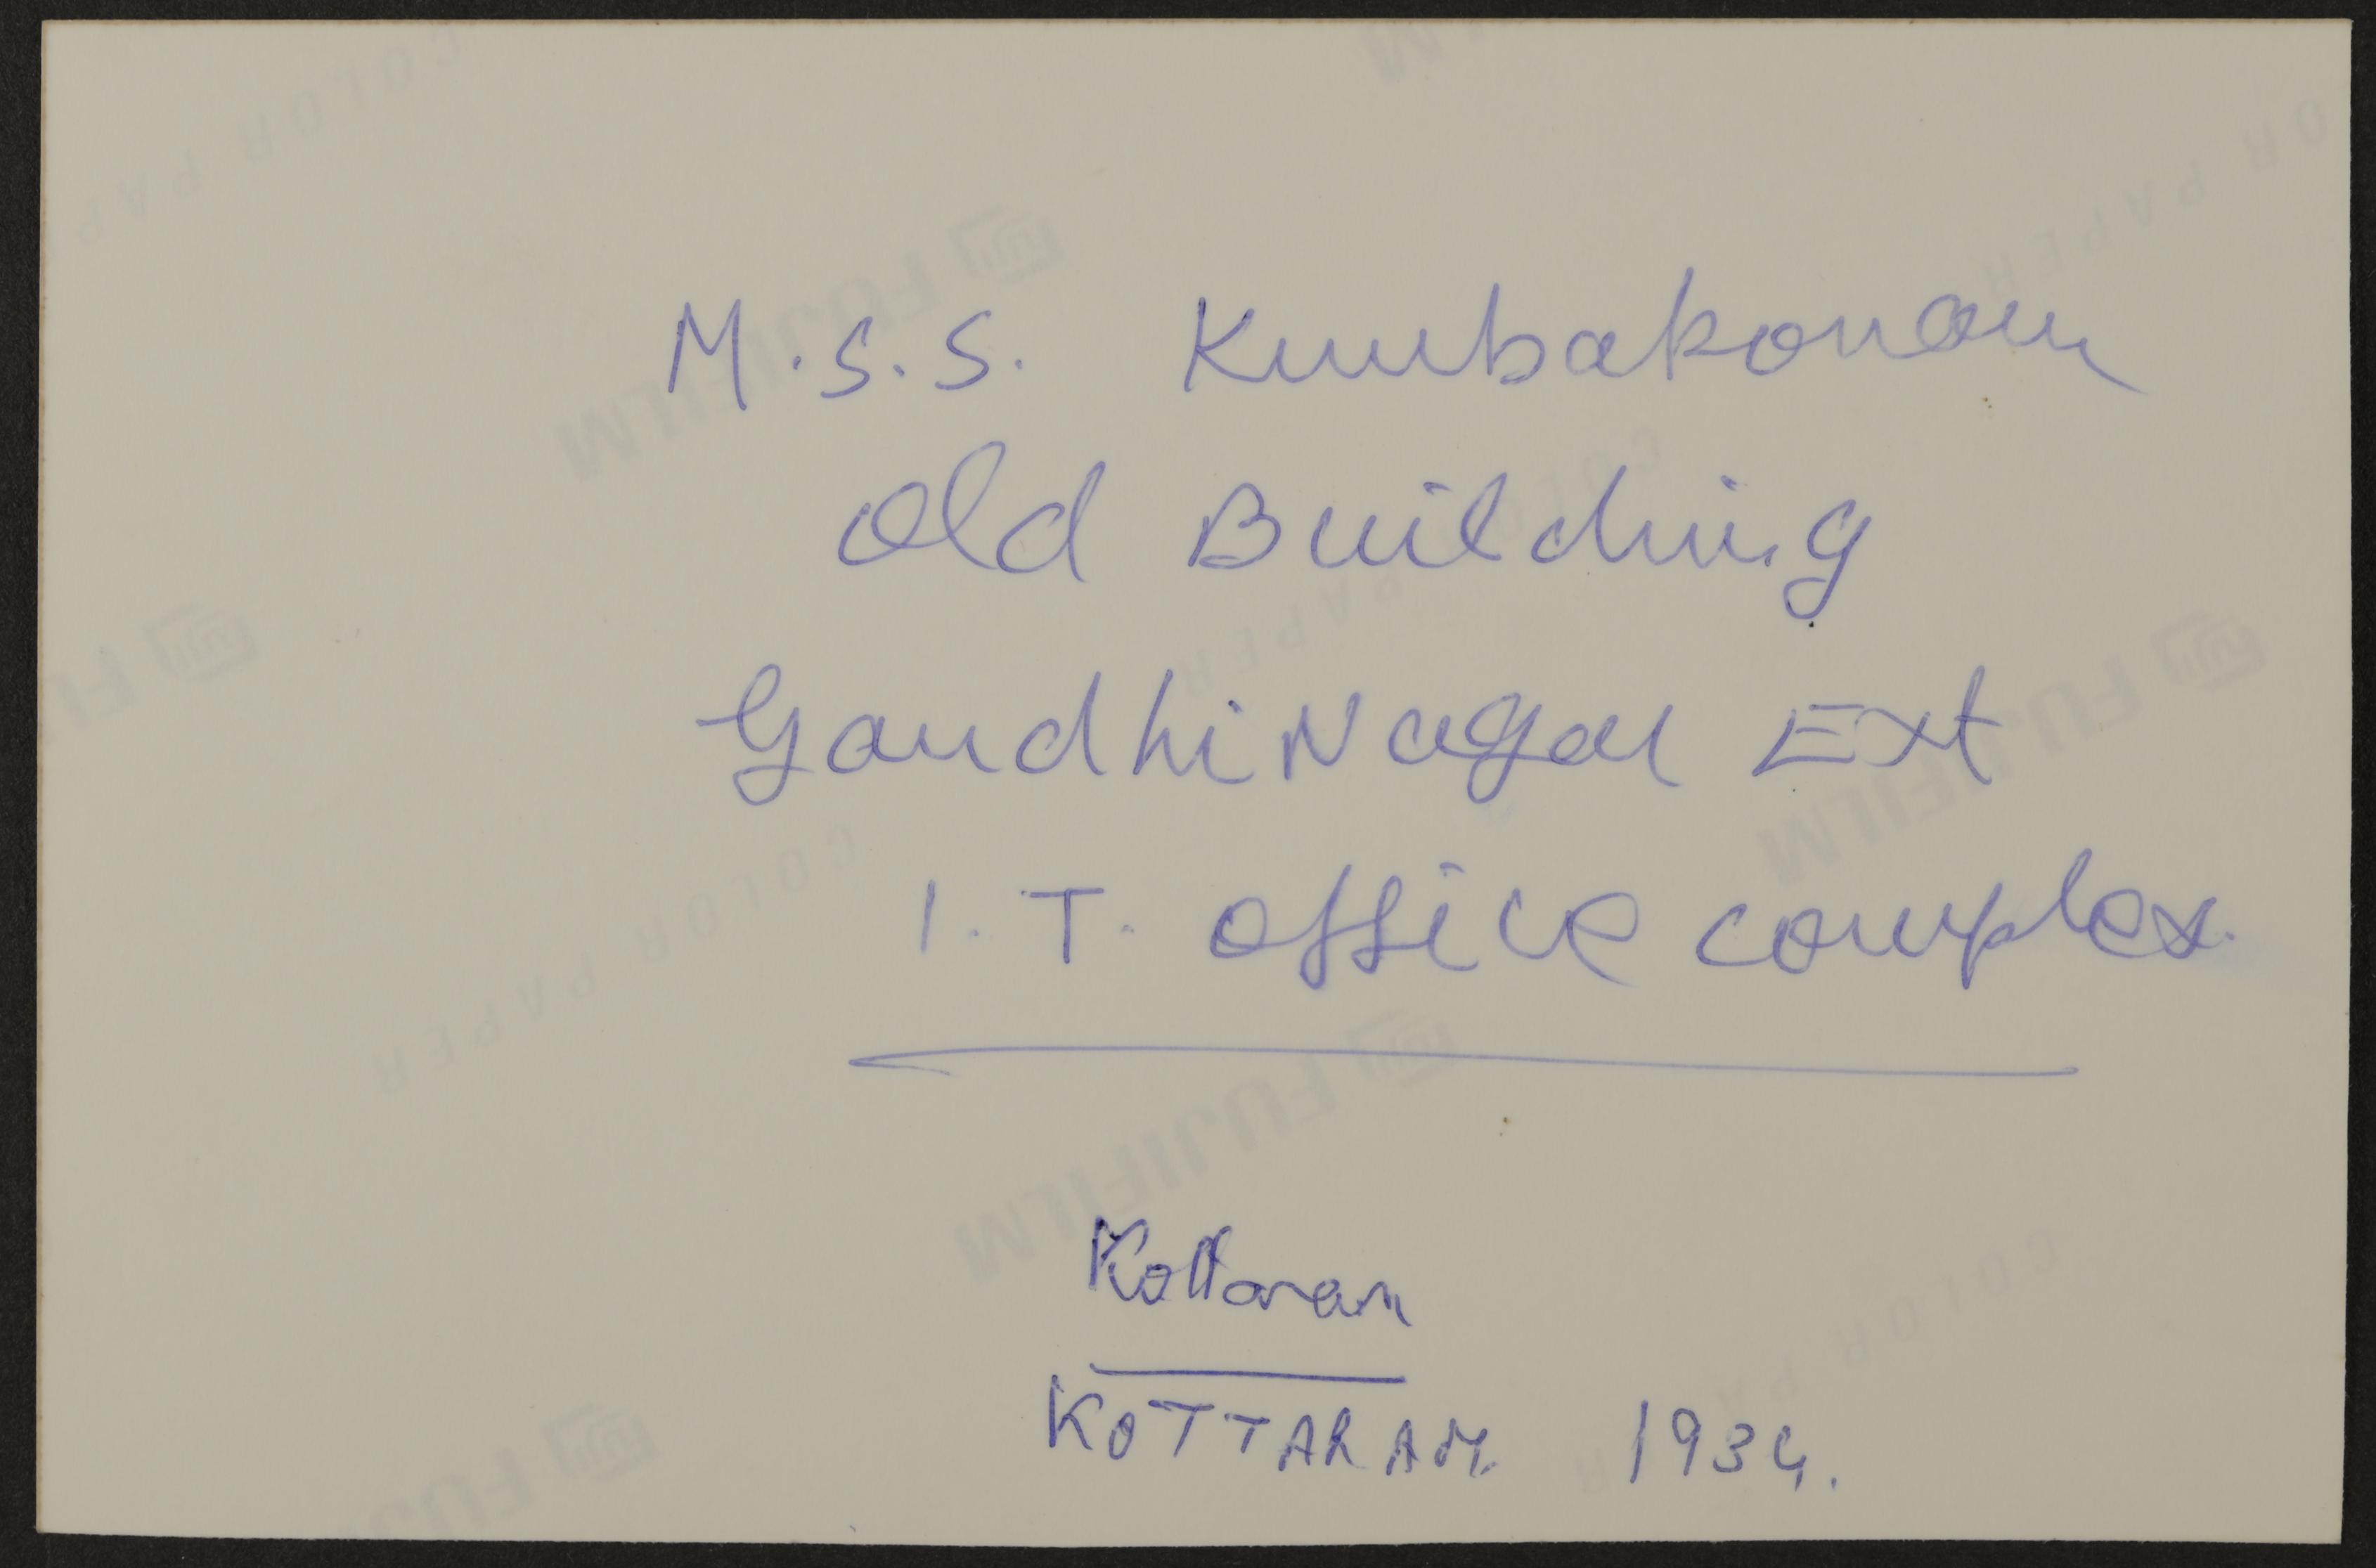 M.S.S. Kumbakonam
Old Building
Gandhi Nagar Ext
I.T. office complex.
Kottaram
KOTTARAM 1934.